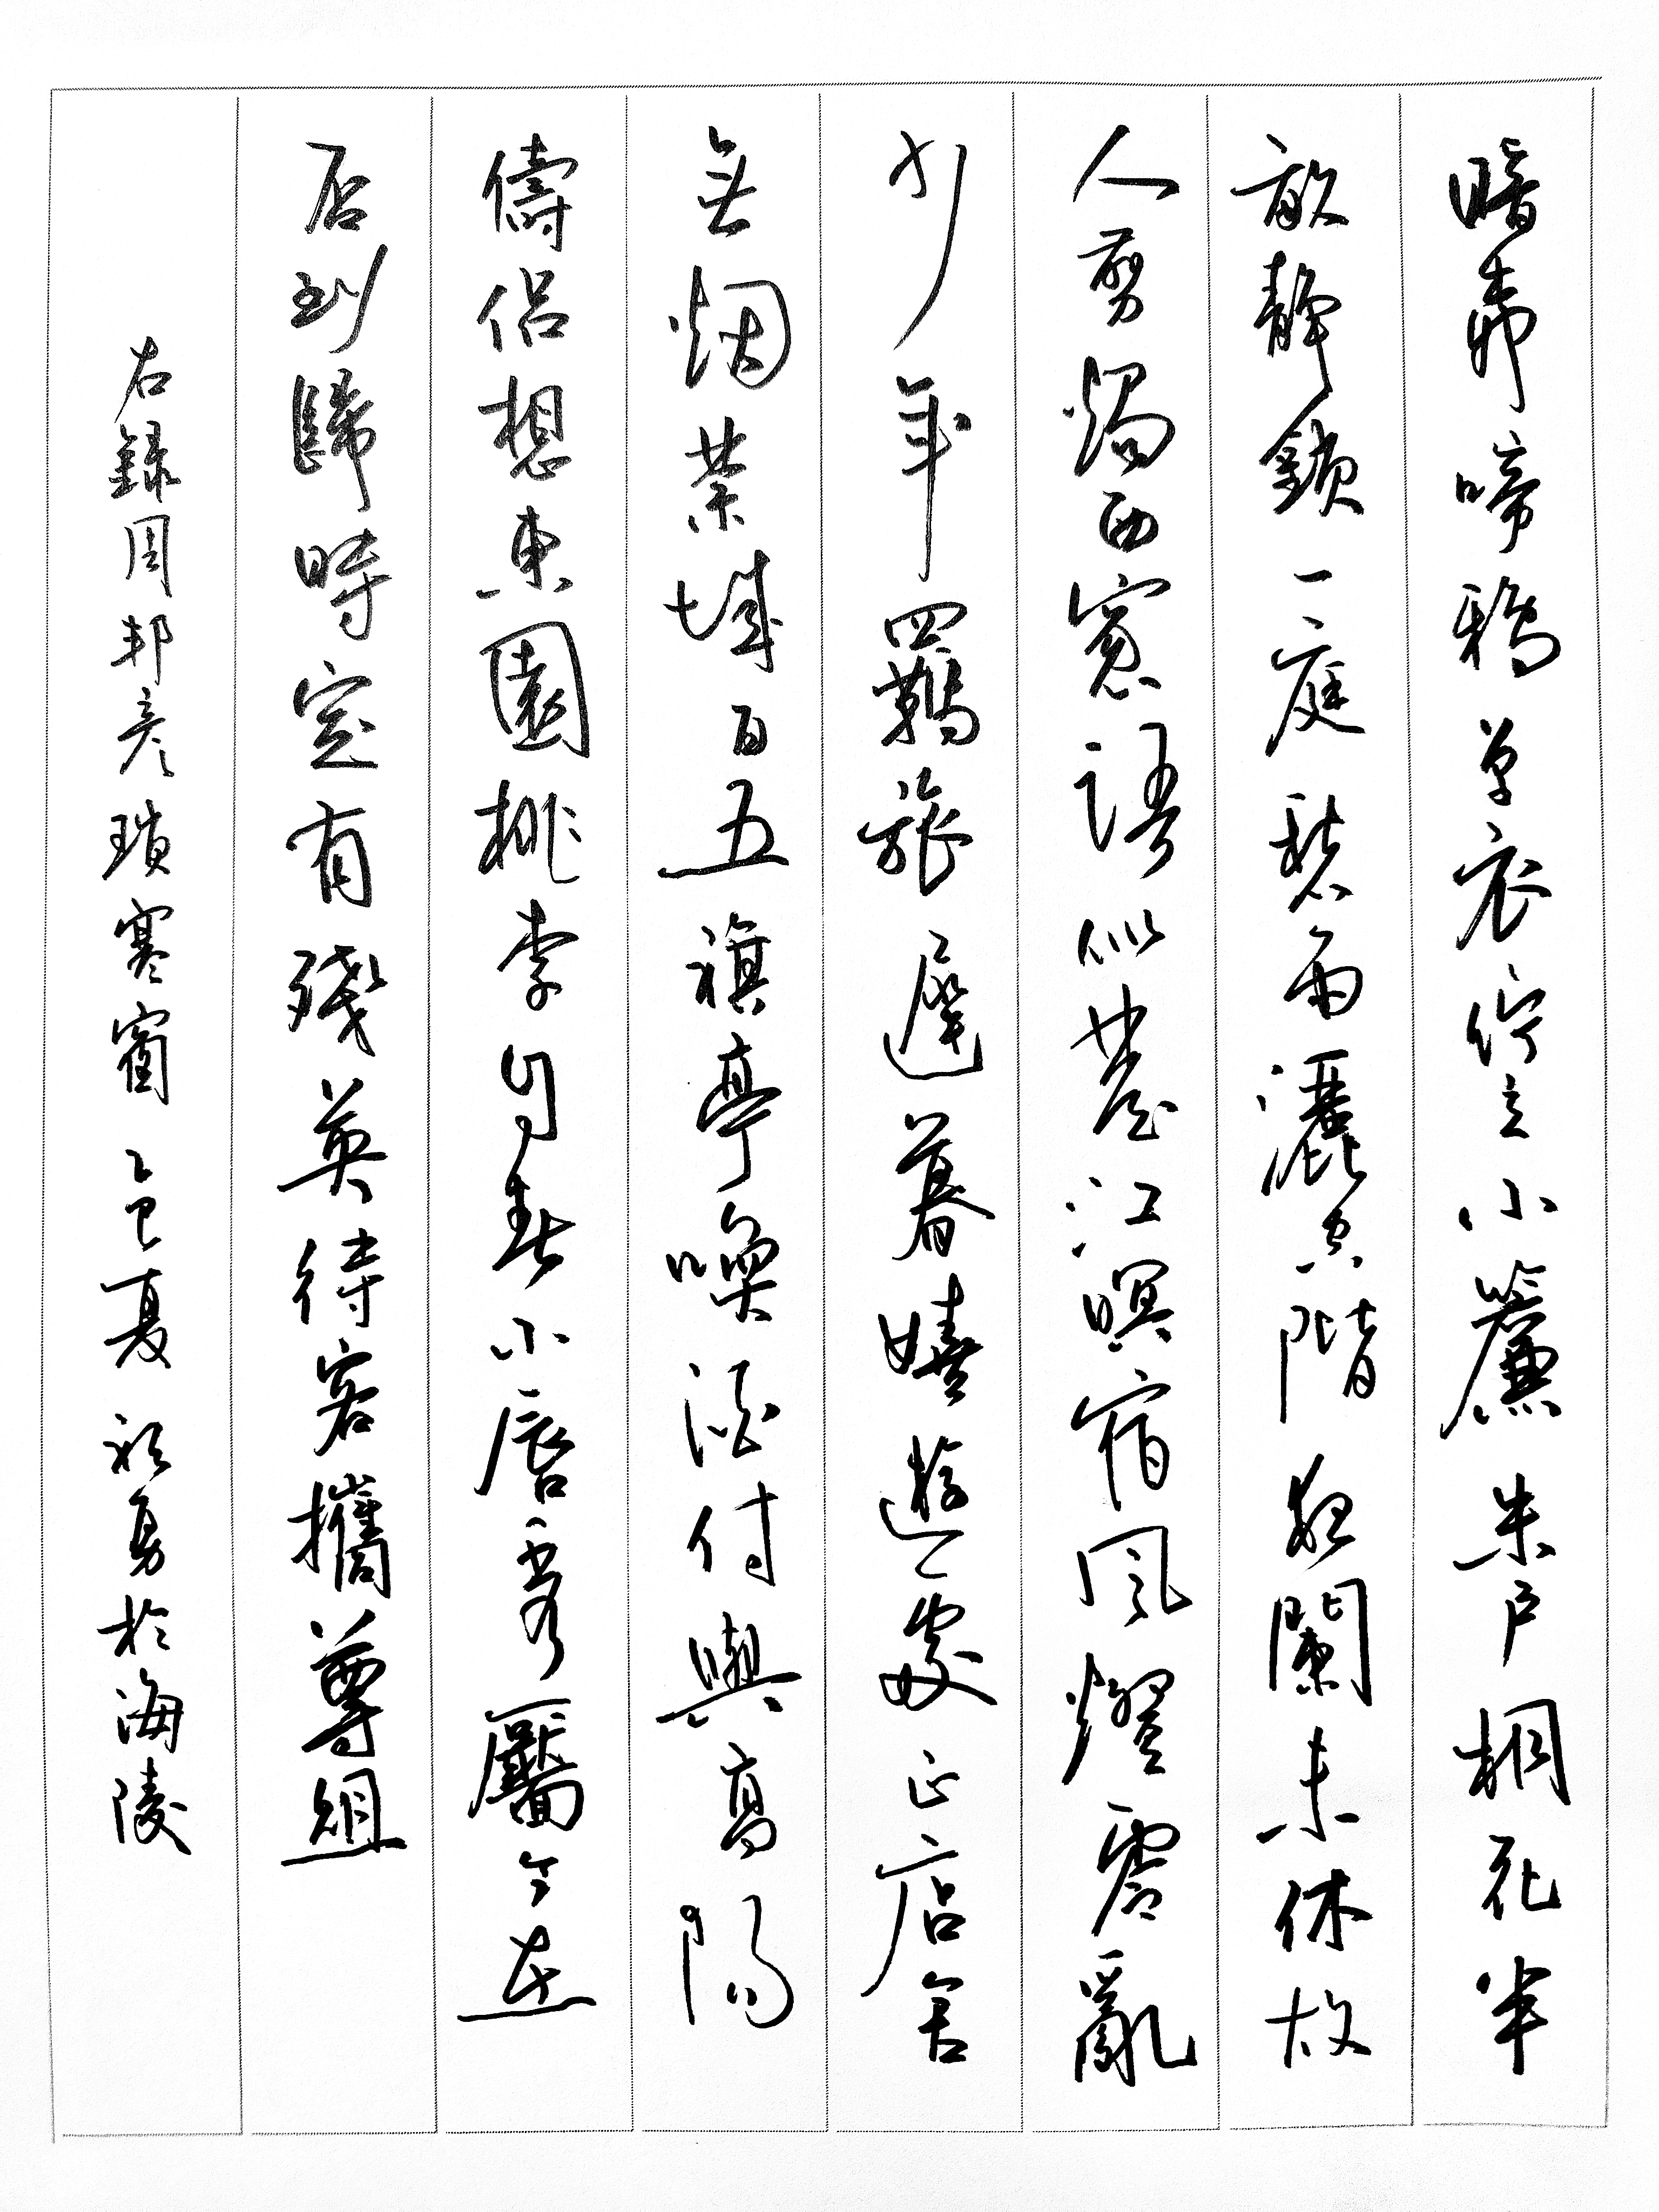 暗柳啼鴉單衣佇立小簾朱戶桐花半
畝靜鎖一庭愁雨灑空階夜闌未休故
人剪燭西窻語似楚江暝宿風燈零亂
少年羈旅遲暮嬉遊處正店舍
無烟禁城百五旗亭喚酒付與高陽
儔侶想東園桃李自春小唇秀靨今在
否到歸時定有殘英待客攜尊俎
右錄周邦彥瑣寒窗 乙巳夏 祁勇於海陵